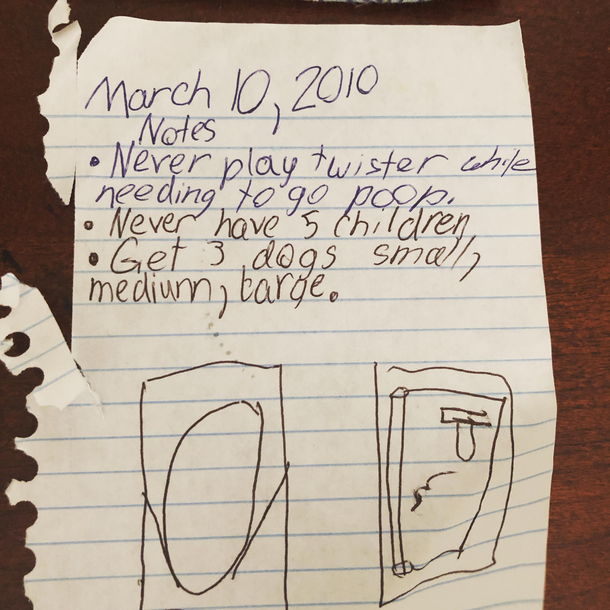 March 10, 2010
Notes
• Never play twister while
needing to go poop.
• Never have 5 children
• Get 3 dogs small,
medium, large.